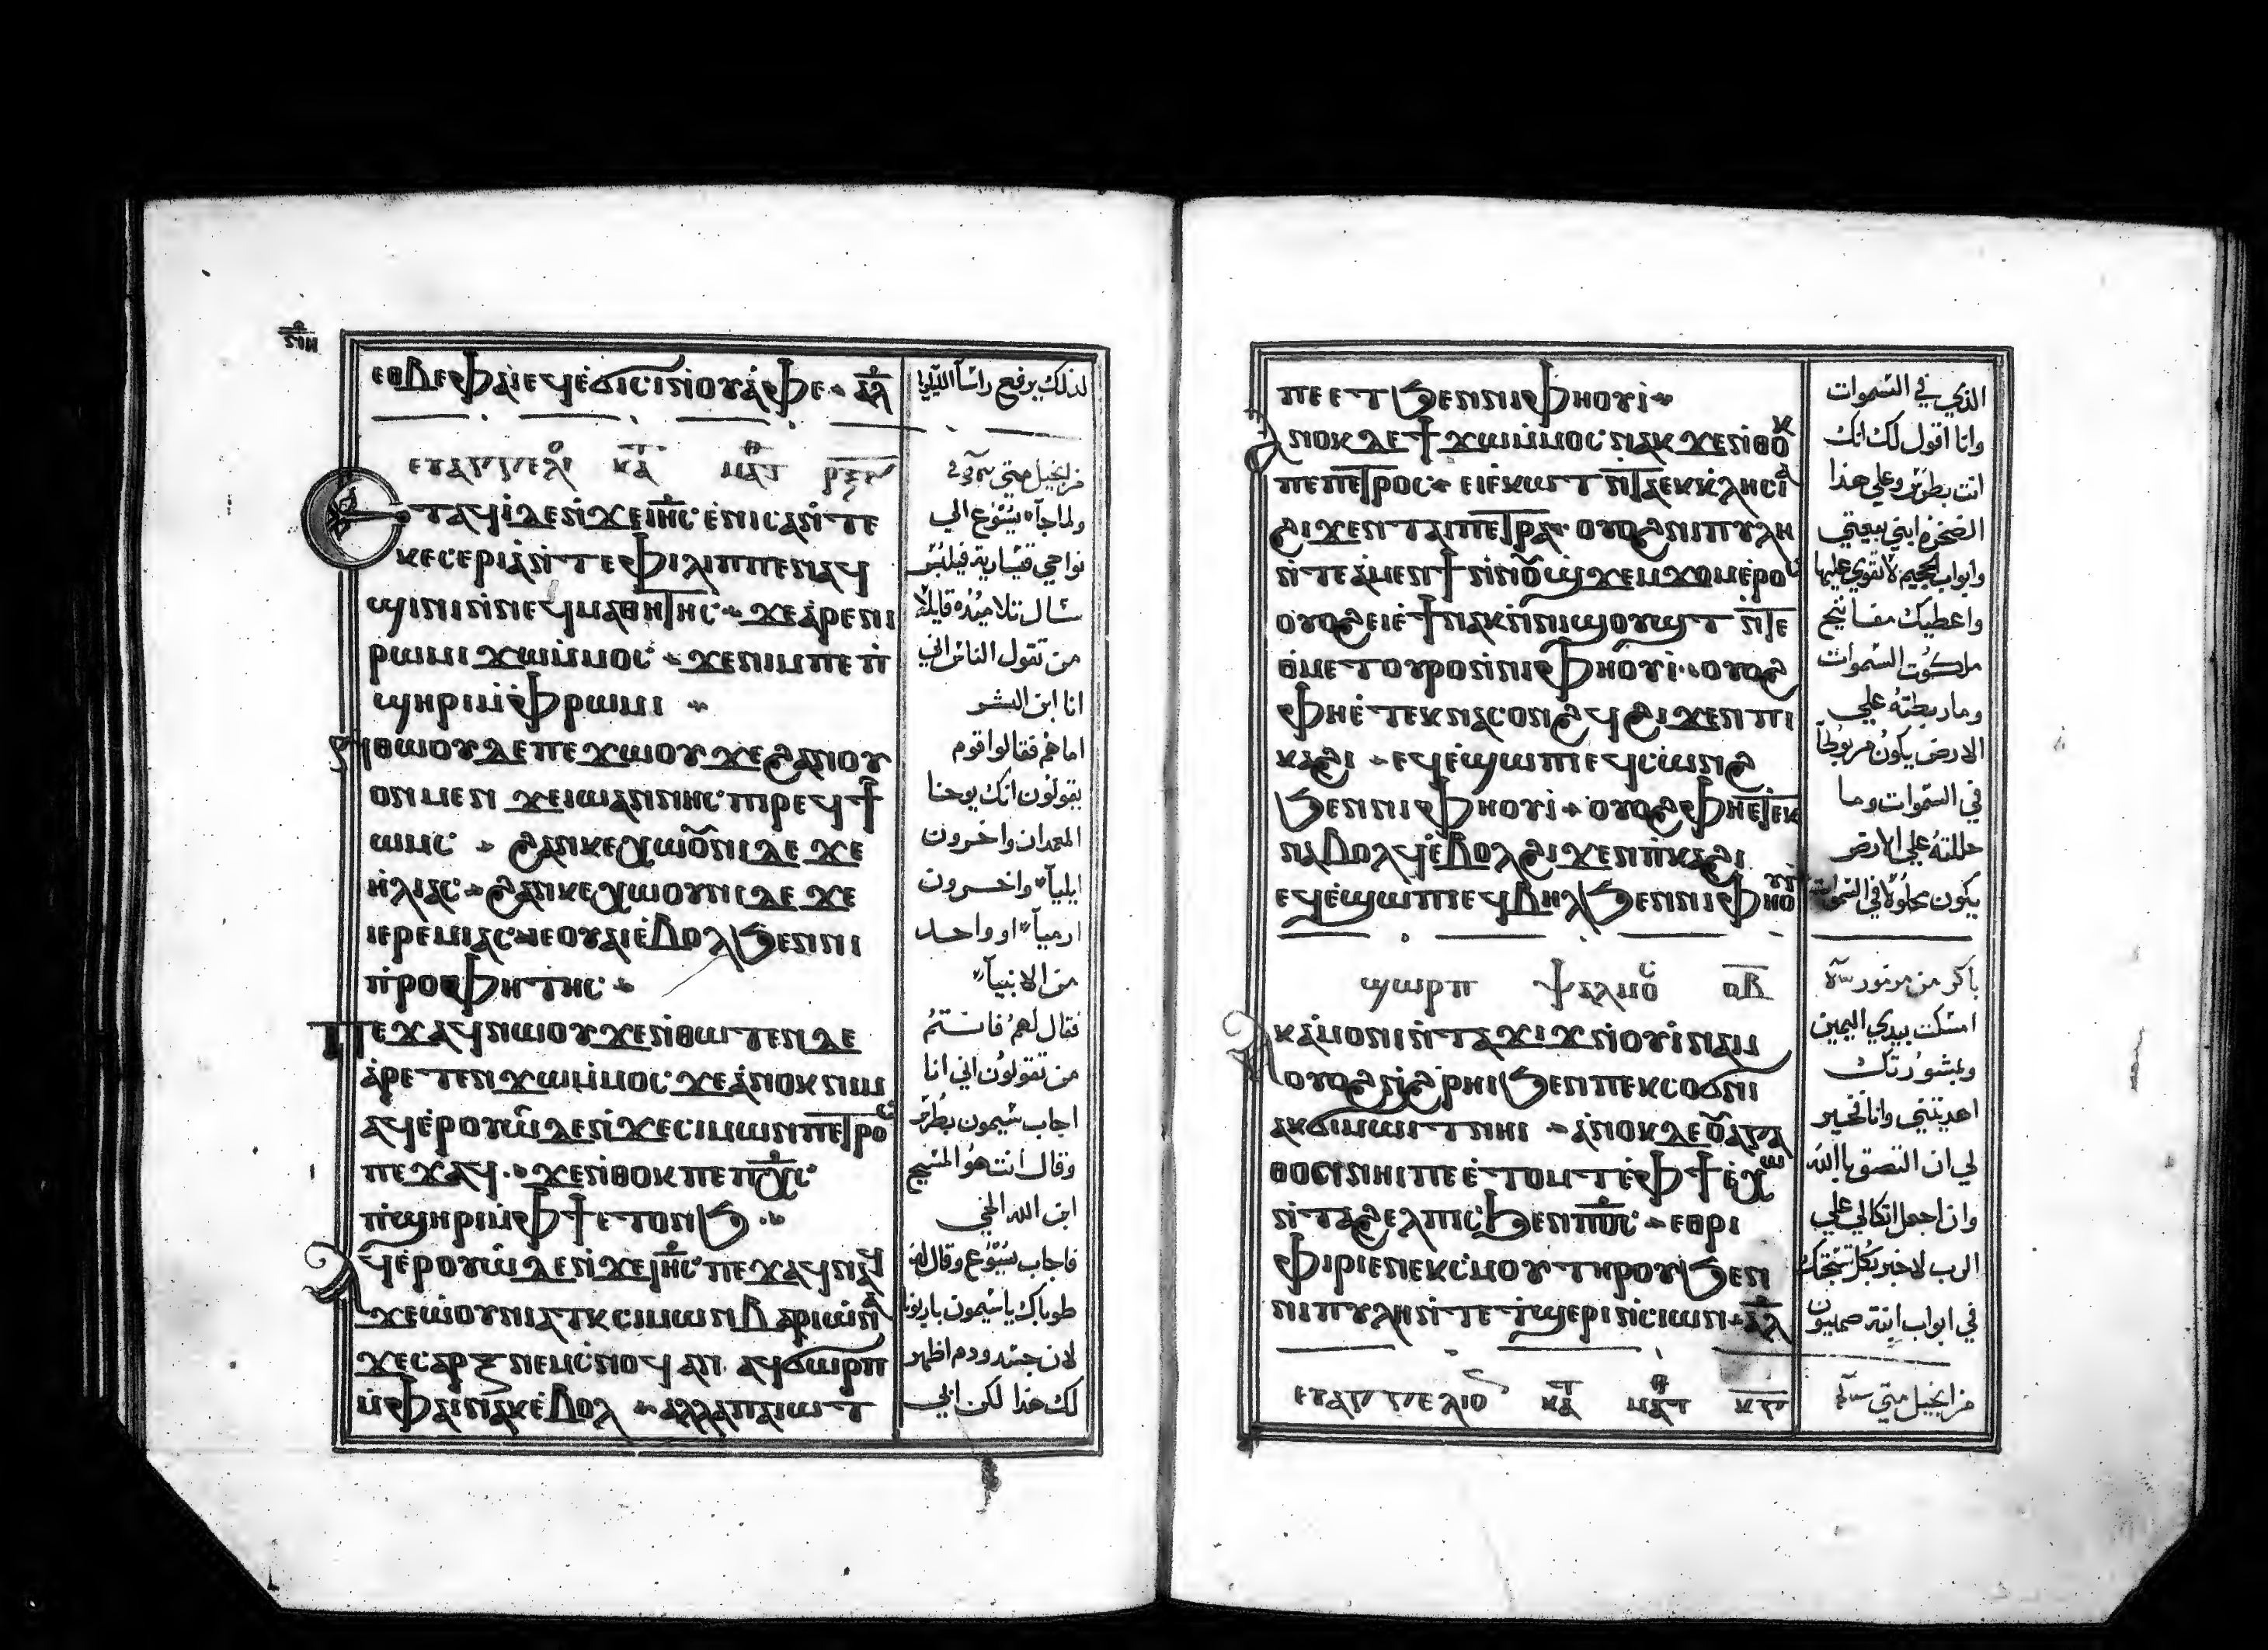 ⲉⲑⲃⲉⲫⲁⲓⲉϥⲉ̀ϭⲓⲥⲓⲛ̀ⲟⲩⲁ̀ⲫⲉ ⲁ̅ⲗ̅
ⲉⲩⲁⲅⲅⲉⲗⲓ ⲕⲁⲧ ⲙⲁⲧ
ⲉⲧⲁϥⲓ̀ⲇⲉⲛ̀ϫⲉⲓⲏ̅ⲥ̅ ⲉ̀ⲛⲓⲥⲁⲛ̀ⲧⲉ
ⲕⲉⲥⲉⲣⲓⲁ̀ⲛ̀ⲧⲉⲫⲓⲗⲓⲡⲡⲉⲛⲁϥ
ϣⲓⲛⲓⲛ̀ⲛⲉϥⲙⲁⲑⲏⲧⲏⲥ ϫⲉⲁ̀ⲣⲉⲛⲓ
ⲣⲱⲙⲓ ϫⲱⲙ̀ⲙⲟⲥ ϫⲉⲛⲓⲙⲡⲉ ⲡ̀
ϣⲏⲣⲓⲙ̀ⲫⲣⲱⲙⲓ
ⲛ̀ⲑⲱⲟⲩⲇⲉ ⲡⲉϫⲱⲟⲩ ϫⲉϩⲁⲛⲟⲩ
ⲟⲛⲙⲉⲛ ϫⲉⲓⲱⲁⲛⲛⲏⲥ ⲡⲓⲣⲉϥϯ
ⲱⲙⲥ ϩⲁⲛⲕⲉⲭⲱⲟⲩⲛⲓ ⲇⲉ ϫⲉ
ⲏ̀ⲗⲓⲁⲥ ϩⲁⲛⲕⲉⲭⲱⲟⲩⲛⲓ ⲇⲉ ϫⲉ
ⲓⲉⲣⲉⲙⲓⲁⲥ ⲓⲉⲟⲩⲁⲓⲉ̀ⲃⲟⲗϧⲉⲛⲛⲓ
ⲡ̀ⲣⲟⲫⲏⲧⲏⲥ
ⲡⲉϫⲁϥⲛⲱⲟⲩ ϫⲉⲛ̀ⲑⲱⲧⲉⲛ ⲇⲉ
ⲁ̀ⲣⲉⲧⲉⲛϫⲱⲙ̀ⲙⲟⲥ ϫⲉⲁ̀ⲛⲟⲕ ⲛⲓⲙ
ⲁϥⲉ̀ⲣⲟⲩⲱ̀ⲇⲉⲛ̀ϫⲉⲥⲓⲙⲱⲛⲡⲉⲧⲣⲟⲥ
ⲡⲉϫⲁϥ ϫⲉⲛ̀ⲑⲟⲕ ⲡⲉ ⲡⲭ̅ⲥ̅
ⲡ̀ϣⲏⲣⲓⲙ̀ⲫϯⲉⲧⲟⲛϧ
ⲁϥⲉ̀ⲣⲟⲩⲱ̀ⲇⲉⲛ̀ϫⲉⲓⲏ̅ⲥ̅ ⲡⲉϫⲁϥⲛⲁϥ
ϫⲉⲱ̀ⲟⲩⲛⲓⲁⲧⲕ ⲥⲓⲙⲱⲛ ⲃⲁⲣⲓⲱⲛⲁ
ϫⲉⲥⲁⲣⲝ ⲛⲉⲙⲥ̀ⲛⲟϥ ⲁⲛ ⲁϥϭⲱⲣⲡ
ⲙ̀ⲫⲁⲓⲛⲁⲕⲉ̀ⲃⲟⲗ ⲁⲗⲗⲁⲡⲁⲓⲱⲧ
لذلك يرفع راسا الليلويا
من انجيل متى
ولما جاء يسوع الي
نواحي قيسارية فيلبس
سال تلاميذه قايلا
من تقول الناس اني
انا ابن البشر
اما هم فقالوا قوم
يقولون انك يوحنا
المعمدان واخرون
ايليا واخرون
ارميا او واحد
من الانبيا
فقال لهم فانتم
من تقولون اني انا
اجاب سيمون بطرس
وقال انت هو المسيح
ابن الله الحي
فاجاب يسوع وقال له
طوباك يا سيمون باريونا
لان جسد ودم اظهر
لك هذا لكن ابي
ⲡⲉ ⲉⲧϧⲉⲛⲛⲓⲫⲏⲟⲩⲓ̀
ⲁⲛⲟⲕ ⲇⲉ ϯϫⲱⲙ̀ⲙⲟⲥ ⲛⲁⲕ ϫⲉⲛ̀ⲑⲟⲕ
ⲡⲉⲡⲉⲧⲣⲟⲥ ⲉⲓⲉ̀ⲕⲱⲧ ⲛ̀ⲧⲁⲉⲕⲕⲗⲏⲥⲓⲁ
ϩⲓϫⲉⲛ ⲧⲁⲓⲡⲉⲧⲣⲁ ⲟⲩⲟϩⲛⲓⲡⲩⲗⲏ
ⲛ̀ⲧⲉⲁ̀ⲙⲉⲛϯ ⲛ̀ⲛⲟⲩϣϫⲉⲙϫⲟⲙⲉ̀ⲣⲟⲥ
ⲟⲩⲟϩⲉⲓⲉ̀ϯⲛⲁⲕⲛ̀ⲛⲓϣⲟⲩϣⲧ ⲛ̀ⲧⲉ
ⲑ̀ⲙⲉⲧⲟⲩⲣⲟⲛ̀ⲛⲓⲫⲏⲟⲩⲓ̀ ⲟⲩⲟϩ
ⲫⲏⲉ̀ⲧⲉⲕⲛⲁⲥⲟⲛϩϥ ϩⲓϫⲉⲛ ⲡⲓ
ⲕⲁϩⲓ ⲉϥⲉ̀ϣⲱⲡⲓ ⲉϥⲥⲱⲛϩ
ϧⲉⲛⲛⲓⲫⲏⲟⲩⲓ̀ ⲟⲩⲟϩ ⲫⲏⲉⲧⲉⲕ
ⲛⲁⲃⲟⲗϥⲉ̀ⲃⲟⲗϩⲓϫⲉⲛⲡ̀ⲕⲁϩⲓ
ⲉϥⲉ̀ϣⲱⲡⲓ ⲉϥⲃⲏⲗ ϧⲉⲛⲛⲓⲫⲏⲟⲩⲓ̀
ϣⲱⲣⲡ ⲯⲁⲗⲙⲟⲥ ⲟ̅ⲃ̅
ⲁⲕⲁ̀ⲙⲟⲛⲓⲛ̀ⲧⲁϫⲓϫ ⲛ̀ⲟⲩⲓ̀ⲛⲁⲙ
ⲟⲩⲟϩⲛ̀ϩ̀ⲣⲏⲓϧⲉⲛⲡⲉⲕⲥⲟϭⲛⲓ
ⲁⲕϭⲓⲙⲱⲓⲧⲛⲏⲓ ⲁⲛⲟⲕ ⲇⲉⲟⲩⲁⲅⲁ
ⲑⲟⲛⲛⲏⲓ ⲡⲉ ⲉ̀ⲧⲟⲙⲧ ⲉ̀ⲫϯ ⲉ̀ⲭⲱ
ⲛ̀ⲧⲁϩⲉⲗⲡⲓⲥ ϧⲉⲛⲡ⳪ ⲉⲑⲣⲓ
ⲫⲓⲣⲓⲉⲛⲉⲕⲥ̀ⲙⲟⲩ ⲧⲏⲣⲟⲩ ϧⲉⲛ
ⲛⲓⲡⲩⲗⲏ ⲛ̀ⲧⲉ ⲧ̀ϣⲉⲣⲓ ⲛ̀ⲥⲓⲱⲛ ⲁ̅ⲗ̅
ⲉⲩⲁⲅⲅⲉⲗⲓⲟ ⲕⲁⲧ ⲙⲁⲧ ⲕ̅ⲅ̅
الذي في السموات
وانا اقول لك انك
انت بطرس وعلي هذا
الصخرة ابني بيعتي
وابواب الجحيم لا تقوي عليها
واعطيك مفاتيح
ملكوت السموات
وما ربطته علي
الارض يكون مربوطا
في السموات وما
حللته علي الارض
يكون محلولا في السموات
باكر من مزمور
امسكت بيدي اليمين
وبمشورتك
اهديتني وانا فخير
لي ان التصق بالله
وان اجعل اتكالي علي
الرب لاخبر بكل تسبحتك
في ابواب ابنة صهيون
من انجيل متي